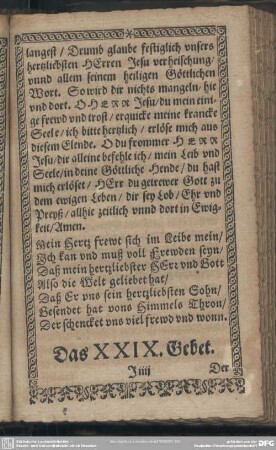 langest / Drumb glaube festiglich vnsers
hertzliebsten Herren Jesu verheischung /
vnnd allem seinem heiligen Göttlichen
Wort. So wird dir nichts mangeln / hie
vnd dort. O HERR Jesu / du mein eini-
ge frewd vnd trost / erquicke meine krancke
Seele / ich bitte hertzlich / erlöse mich aus
diesem Elende. O du frommer HERR
Jesu / dir alleine befehle ich / mein Leib vnd
Seele / in deine Göttliche Hende / du hast
mich erlöset / HErr du getrewer Gott zu
dem ewigen Leben / dir sey Lob / Ehr vnd
Preyß / allhie zeitlich vnnd dort in Ewig-
keit / Amen.
Mein Hertz frewt sich im Leibe mein /
Ich kan vnd muß voll Frewden seyn /
Daß mein hertzliebster HErr vnd Gott
Also die Welt geliebet hat /
Daß Er vns sein hertzliebsten Sohn /
Gesendet hat vons Himmels Thron /
Der schencket vns viel frewd vnd wonn.
Das XXIX. Gebet.
Jiiij
Der